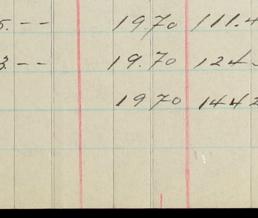 5.-- 1970 111.4
3.-- 19.70 124
1970 1442